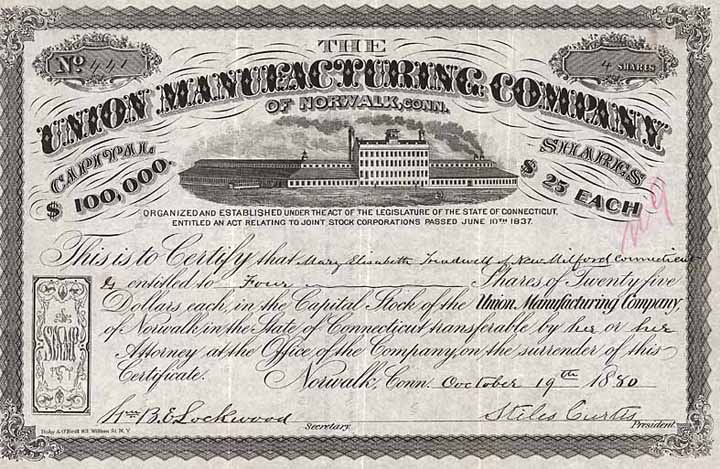 THE
No. 441
4 SHARES
UNION MANUFACTURING COMPANY
OF NORWALK, CONN.
CAPITAL $100,000.
SHARES $25 EACH
ORGANIZED AND ESTABLISHED UNDER THE ACT OF THE LEGISLATURE OF THE STATE OF CONNECTICUT,
ENTITLED AN ACT RELATING TO JOINT STOCK CORPORATIONS PASSED JUNE 10TH 1837.
This is to Certify that Mary Elisabeth Treadwell of New Milford Connecticut
is entitled to Four Shares of Twenty five
Dollars each, in the Capital Stock of the Union Manufacturing Company,
of Norwalk in the State of Connecticut transferable by her or her
Attorney at the Office of the Company, on the surrender of this
Certificate. Norwalk, Conn. October 19th 1880
B. E. Lockwood Secretary.
Stiles Curtis President.
SEAL
William St. N.Y.